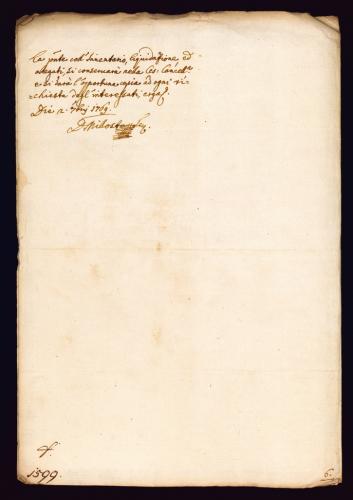 La pnte col' Inventario, liquidazione, ed
allegati, si conservarà nella Ces. Cancel.a
e si darà l'opportuna copia ad ogni ri-
chiesta degl'interessati
Dié 2. 1769
1599.
6.